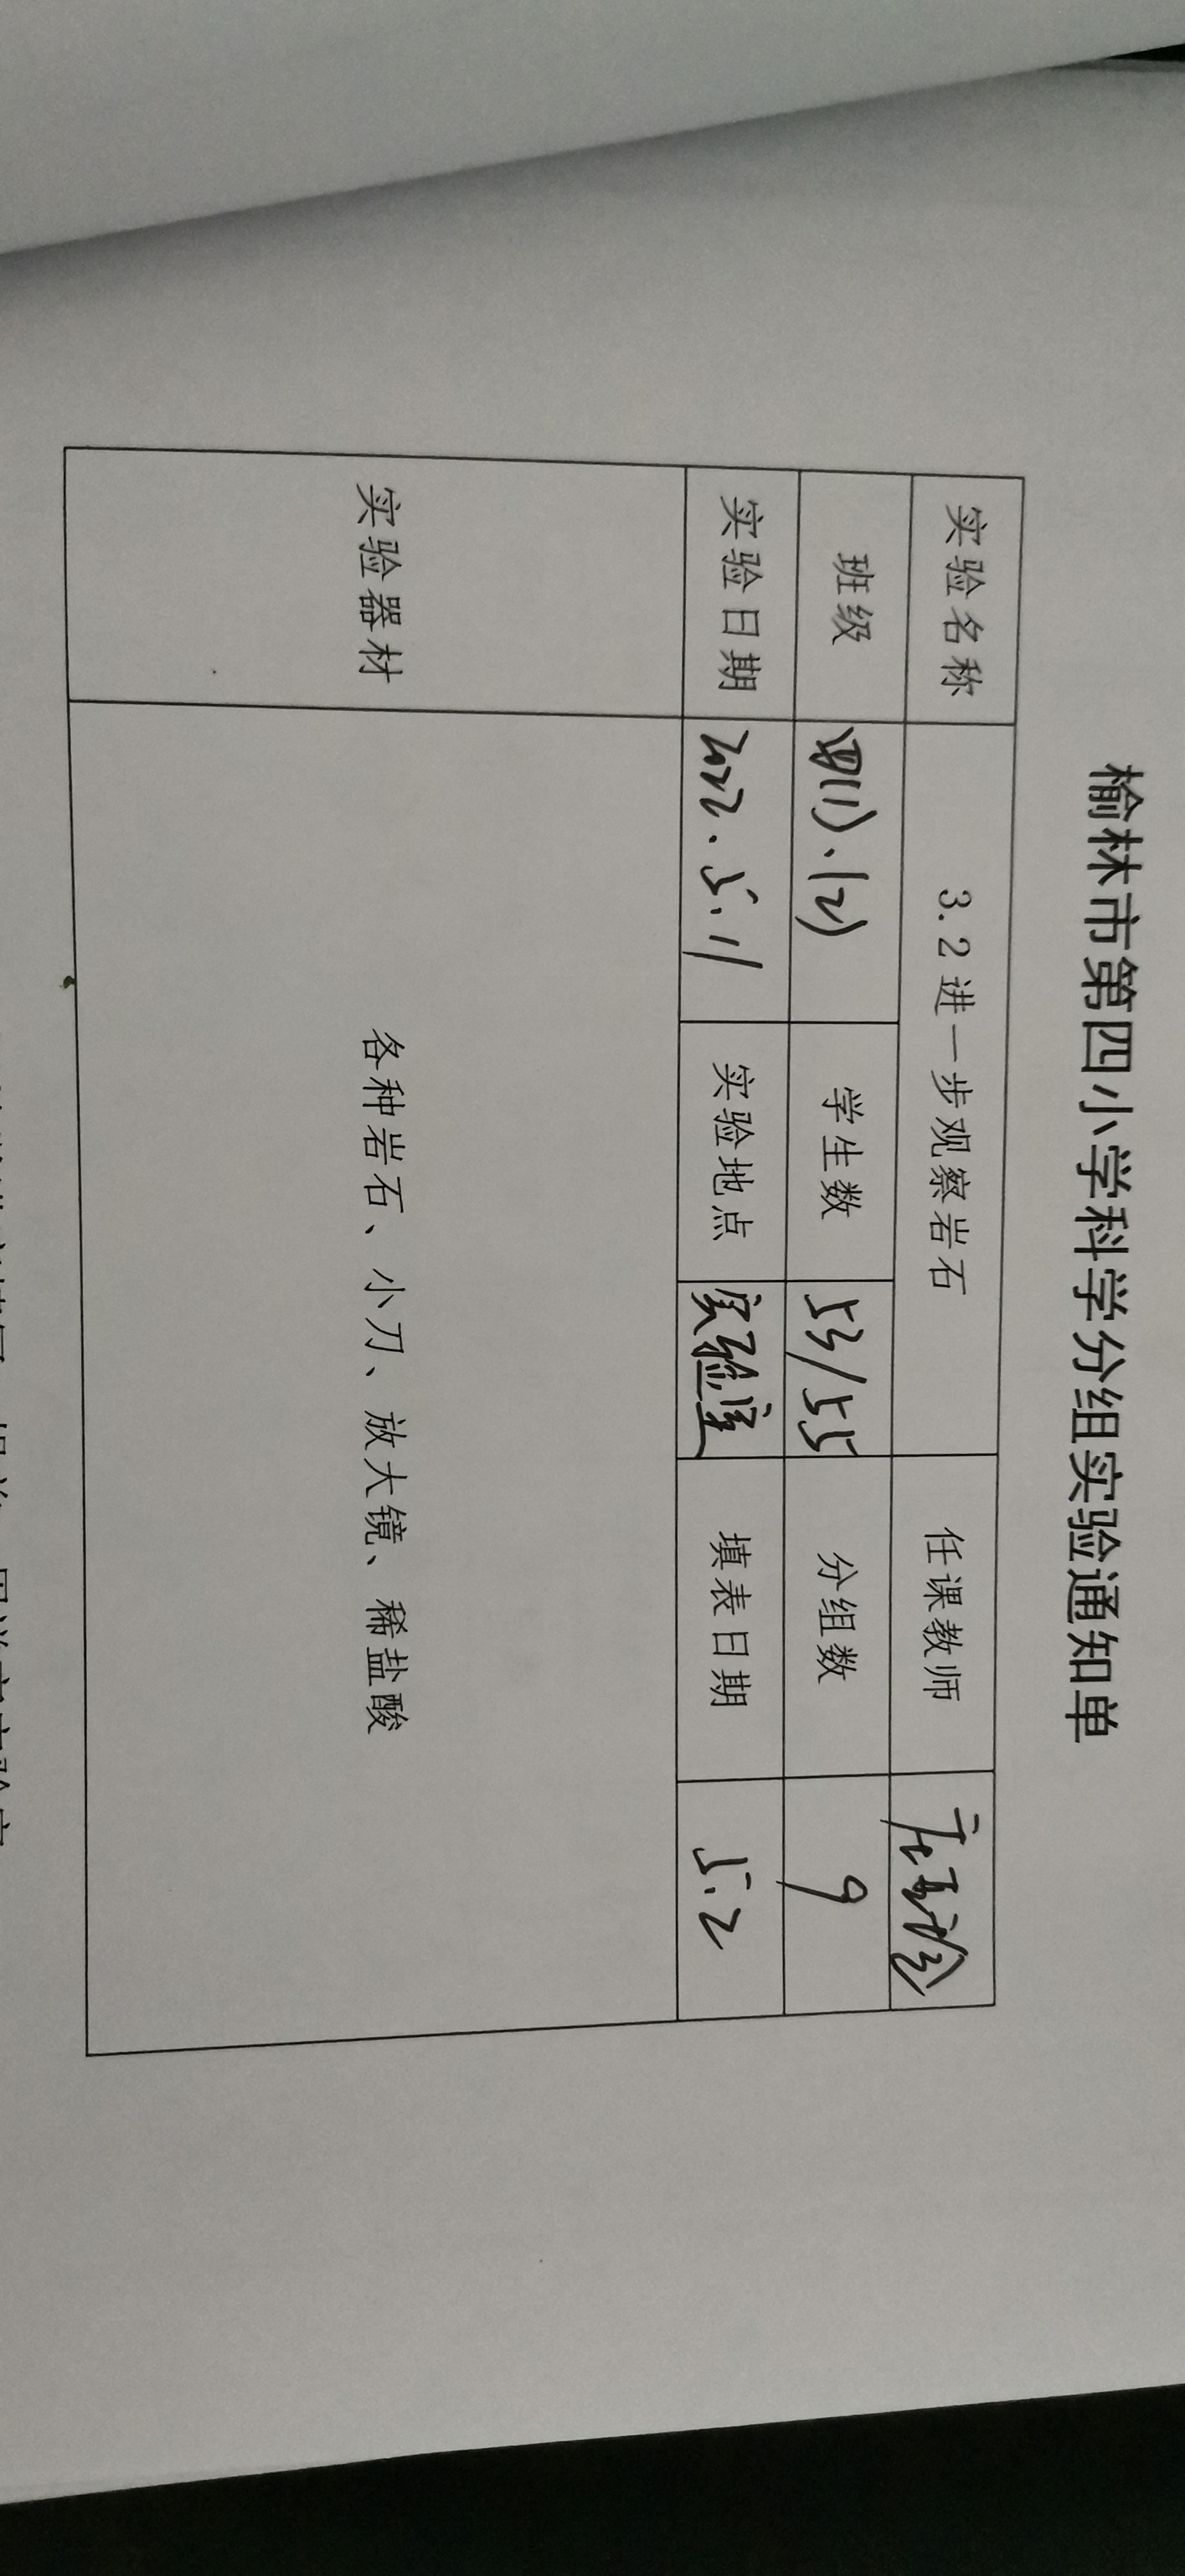 榆林市第四小学科学分组实验通知单
实验名称 3.2进一步观察岩石 任课教师
班级 四(1).(2) 学生数 53/55 分组数 9
实验日期 2022.5.11 实验地点 实验室 填表日期 5.2
实验器材 各种岩石、小刀、放大镜、稀盐酸